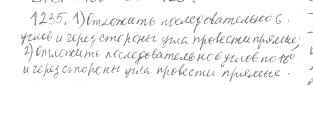 1235. 1) Отложить последовательно 6
углов и через стороны угла провести прямые;
2) Отложить последовательно 6 углов по 18°
и через стороны угла провести прямые.